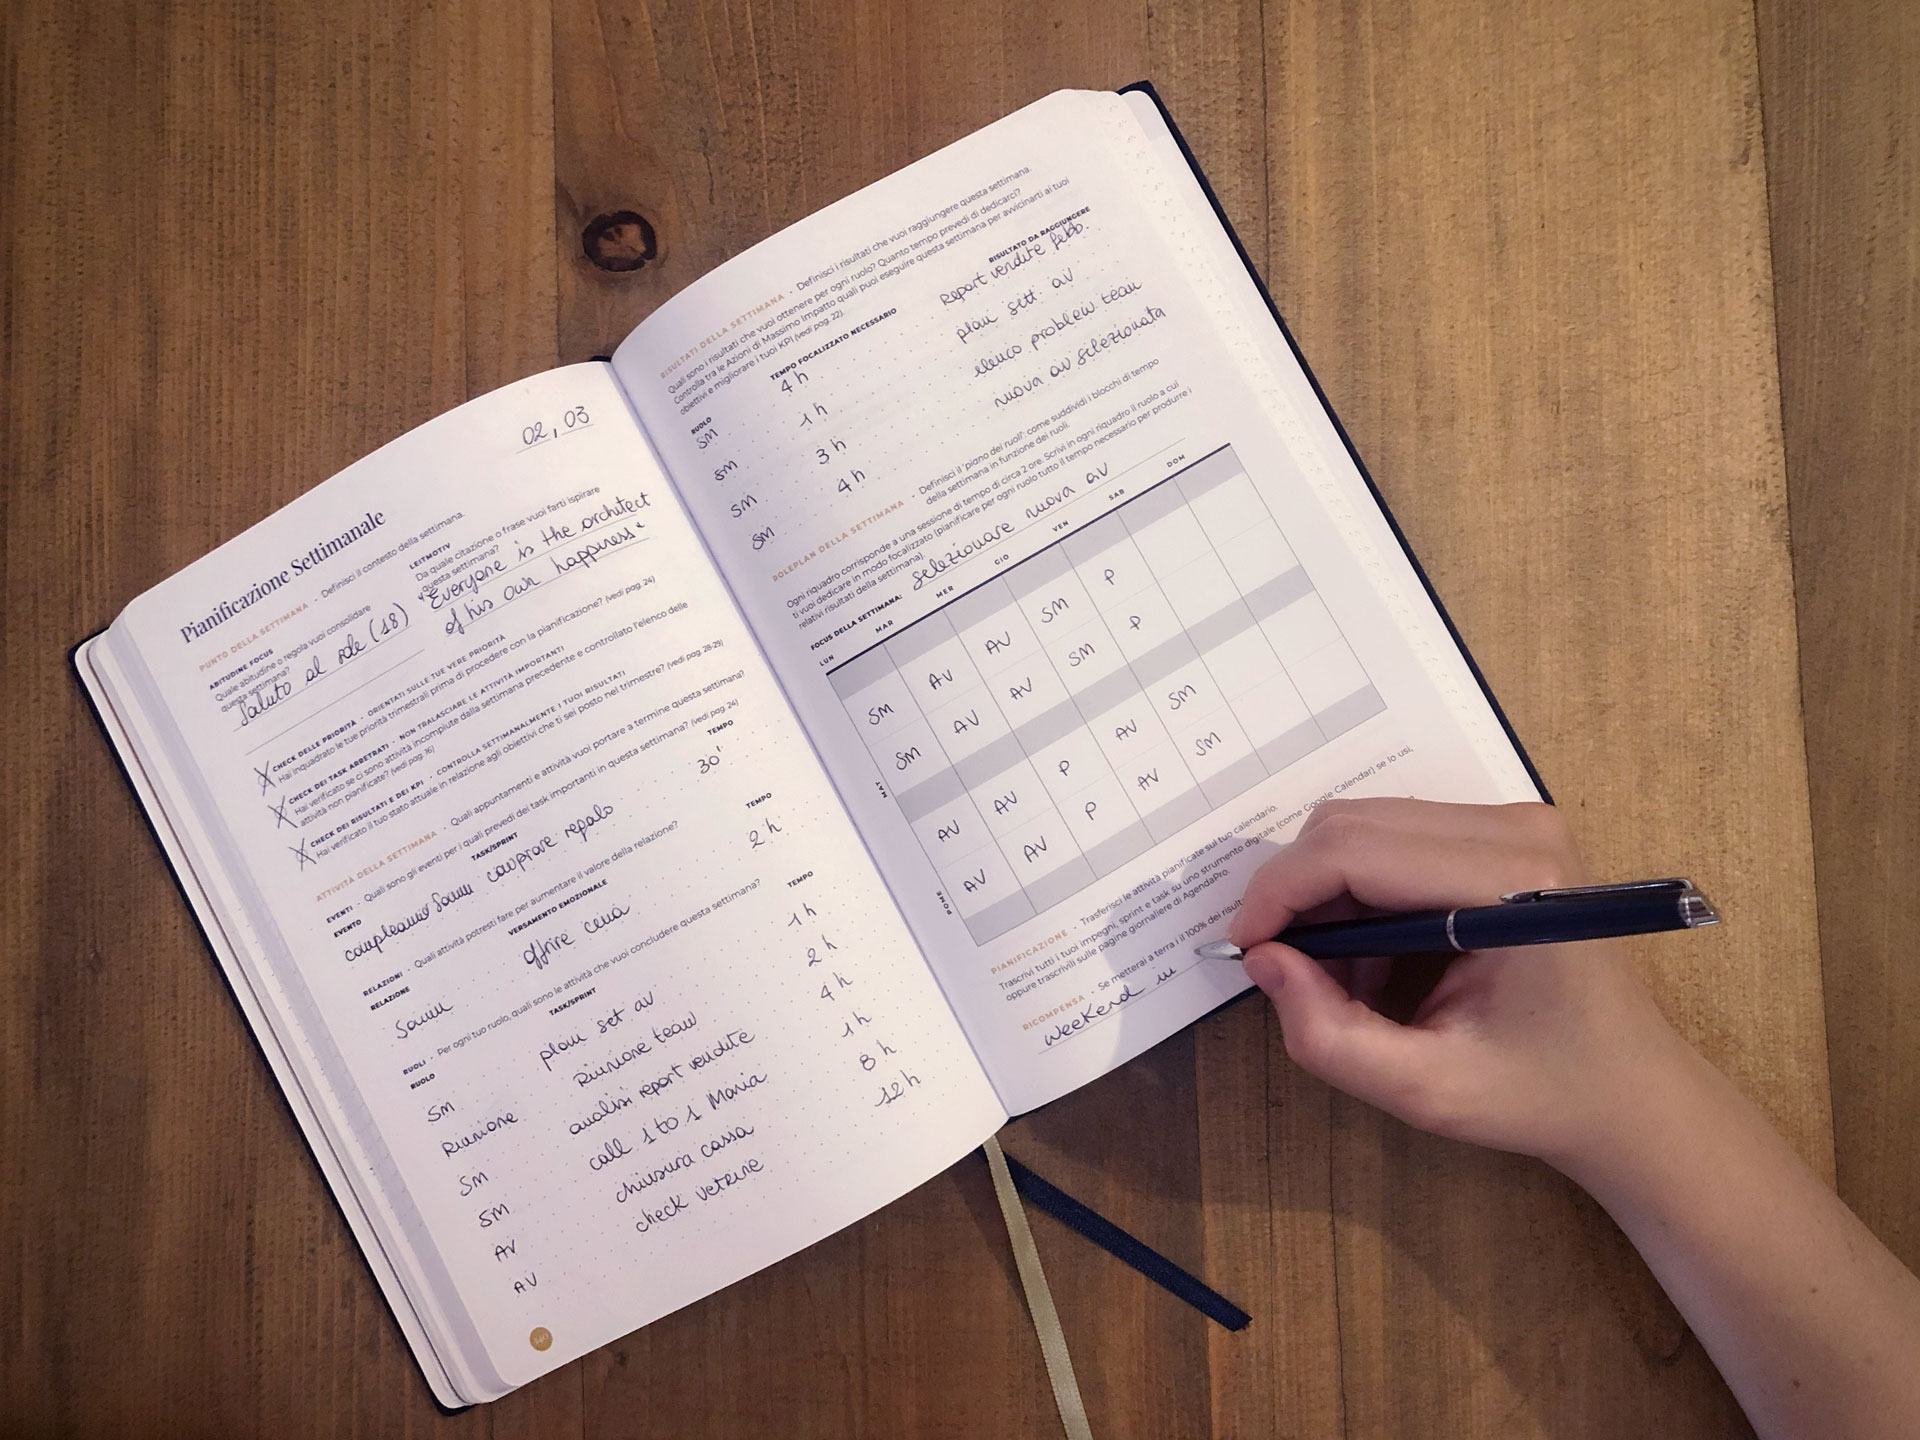 02,03
Pianificazione Settimanale
PUNTO DELLA SETTIMANA - Definisci il contesto della settimana.
ABITUDINE FOCUS
Quale abitudine o regola vuoi consolidare
questa settimana?
Saluto al sole (18)
LEITMOTIV
Da quale citazione o frase vuoi farti ispirare
questa settimana?
"Everyone is the architect
of his own happiness"
X CHECK DELLE PRIORITÀ - ORIENTATI SULLE TUE VERE PRIORITÀ
Hai inquadrato le tue priorità trimestrali prima di procedere con la pianificazione? (vedi pag. 24)
X CHECK DEI TASK ARRETRATI - NON TRALASCIARE LE ATTIVITÀ IMPORTANTI
Hai verificato se ci sono attività incompiute dalla settimana precedente e controllato l'elenco delle
attività non pianificate? (vedi pag. 16)
X CHECK DEI RISULTATI E DEI KPI - CONTROLLA SETTIMANALMENTE I TUOI RISULTATI
Hai verificato il tuo stato attuale in relazione agli obiettivi che ti sei posto nel trimestre? (vedi pag. 28-29)
ATTIVITÀ DELLA SETTIMANA - Quali appuntamenti e attività vuoi portare a termine questa settimana?
EVENTI - Quali sono gli eventi per i quali prevedi dei task importanti in questa settimana? (vedi pag. 24)
EVENTO TASK/SPRINT TEMPO
compleanno comprare regalo 30'
RELAZIONI - Quali attività potresti fare per aumentare il valore della relazione?
RELAZIONE VERSAMENTO EMOZIONALE TEMPO
offrire cena 2 h
RUOLI - Per ogni tuo ruolo, quali sono le attività che vuoi concludere questa settimana?
RUOLO TASK/SPRINT TEMPO
SM plan set av 1 h
Riunione Riunione team 2 h
SM analisi report vendite 4 h
SM call 1 to 1 Maria 1 h
AV chiusura cassa 8 h
AV check vetrine 12 h
RISULTATI DELLA SETTIMANA - Definisci i risultati che vuoi raggiungere questa settimana.
Quali sono i risultati che vuoi ottenere per ogni ruolo? Quanto tempo prevedi di dedicarci?
Controlla tra le Azioni di Massimo Impatto quali puoi eseguire questa settimana per avvicinarti ai tuoi
obiettivi e migliorare i tuoi KPI (vedi pag. 22).
RUOLO TEMPO FOCALIZZATO NECESSARIO RISULTATO DA RAGGIUNGERE
SM 4 h Report vendite febb.
SM 1 h plan sett. av
SM 3 h elenco problem. team
SM 4 h nuova av selezionata
ROLEPLAN DELLA SETTIMANA - Definisci il 'piano dei ruoli': come suddividi i blocchi di tempo
della settimana in funzione dei ruoli.
Ogni riquadro corrisponde a una sessione di tempo di circa 2 ore. Scrivi in ogni riquadro il ruolo a cui
ti vuoi dedicare in modo focalizzato (pianificare per ogni ruolo tutto il tempo necessario per produrre i
relativi risultati della settimana).
FOCUS DELLA SETTIMANA: selezionare nuova av
LUN MAR MER GIO VEN SAB DOM
MAT
SM AV AV SM P
SM AV AV SM P
POME
AV AV P AV SM
AV AV P AV SM
PIANIFICAZIONE - Trasferisci le attività pianificate sul tuo calendario.
Trascrivi tutti i tuoi impegni, sprint e task su uno strumento digitale (come Google Calendar) se lo usi,
oppure trascrivili sulle pagine giornaliere di AgendaPro.
RICOMPENSA - Se metterai a terra il 100% dei
weekend in